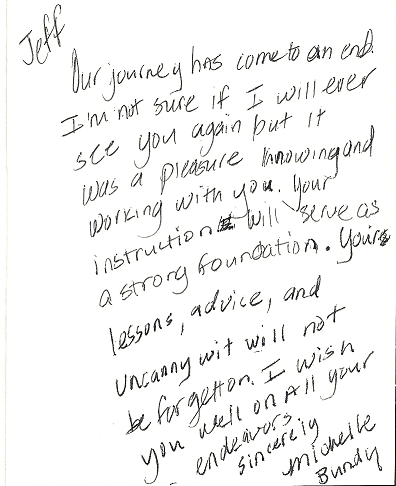 Jeff
Our journey has come to an end.
I'm not sure if I will ever
see you again but it
was a pleasure knowing and
working with you. Your
instruction will serve as
a strong foundation. Yours
lessons, advice, and
uncanny wit will not
be forgetton. I wish
you well on All your
endeavors
sincerely
Michelle
Bundy